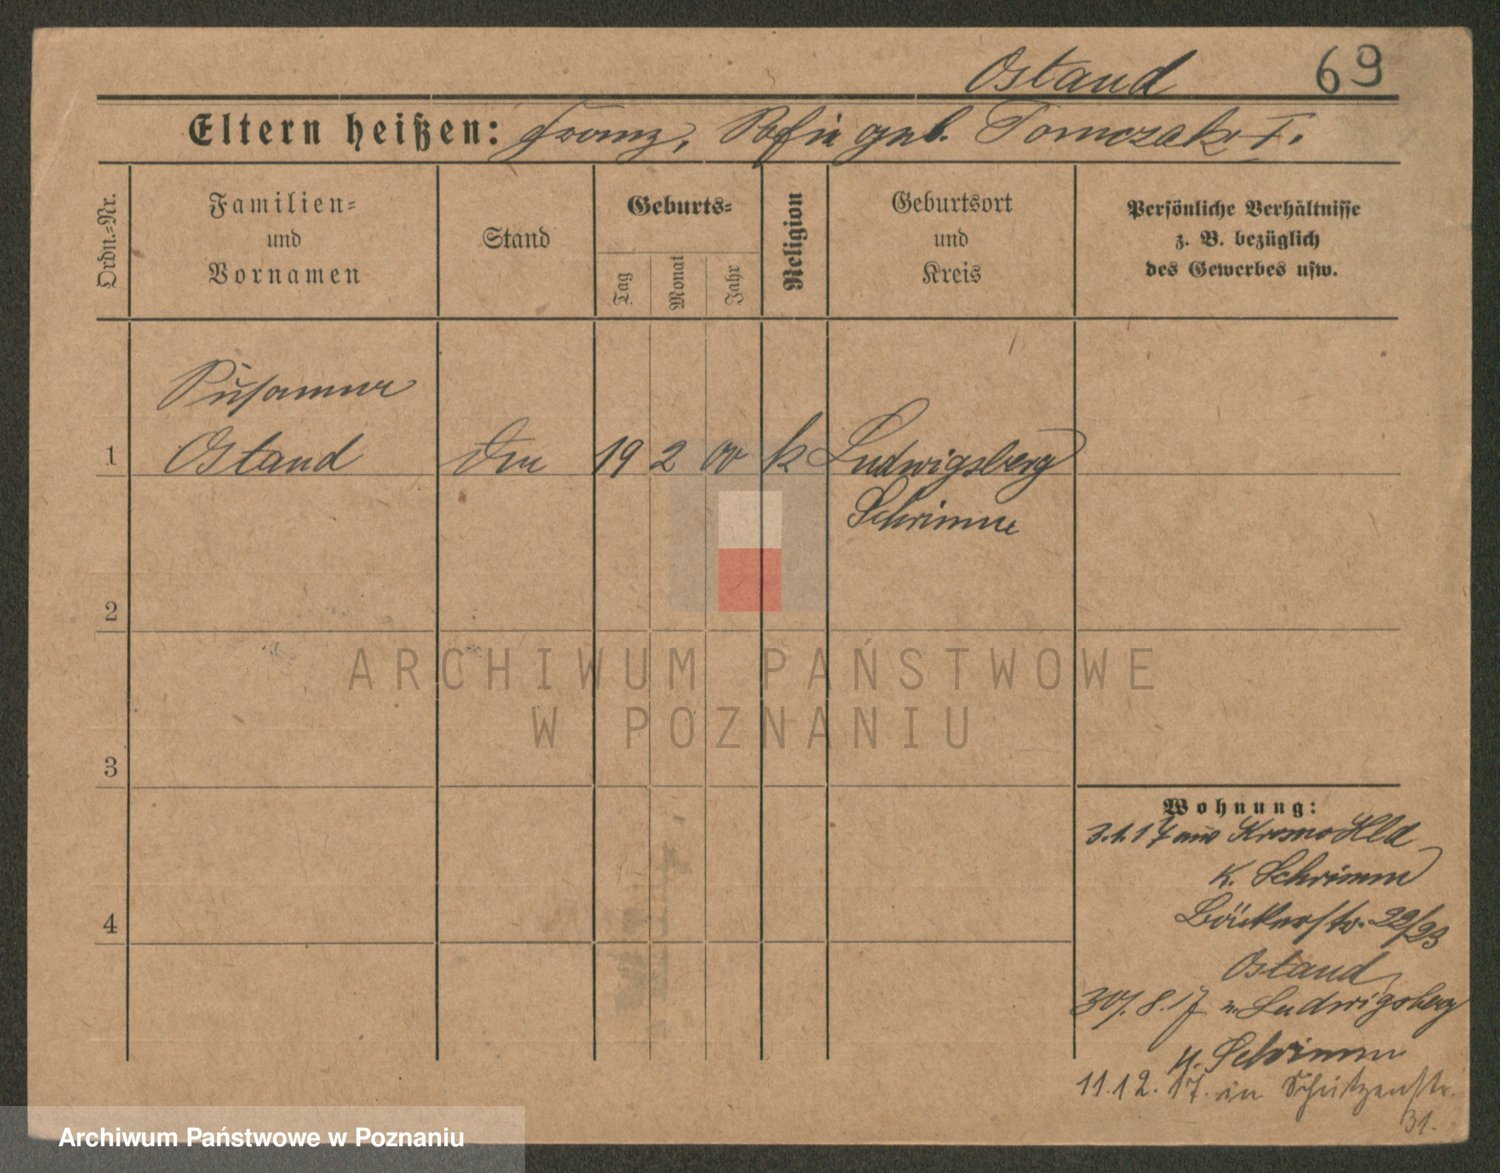 Ostand 69
Eltern heißen: Franz, Sofie geb. Tomczak I.
Ordn.-Nr.
Familien-
und
Vornamen
Stand
Geburts-
Tag
Monat
Jahr
Religion
Geburtsort
und
Kreis
Persönliche Verhältnisse
z. B. bezüglich
des Gewerbes usw.
1 Ostand 19 2 00 k Ludwigsberg
Schrimm
2
3
4
Wohnung:
3.1.17 aus Krosno Hld
K. Schrimm
Bäckerstr. 22/23
Ostand
30/.8.17 n. Ludwigsberg
K. Schrimm
11.12.17. in Schützenstr.
31.
ARCHIWUM PAŃSTWOWE
W POZNANIU
Archiwum Państwowe w Poznaniu